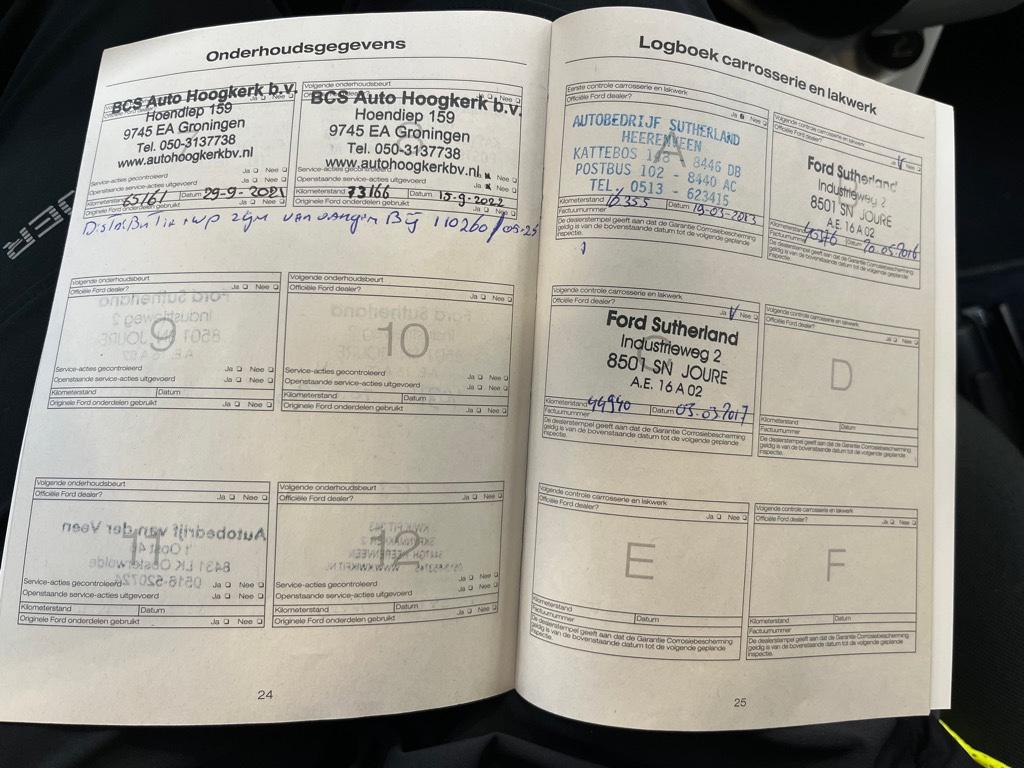 Onderhoudsgegevens
Volgende onderhoudsbeurt
Ja Nee
BCS Auto Hoogkerk b.v.
Hoendiep 159
9745 EA Groningen
Tel. 050-3137738
www.autohoogkerkbv.nl
Service-acties gecontroleerd
Openstaande service-acties uitgevoerd
Kilometerstand 65161 Datum 29-9-2021
Originele Ford onderdelen gebruikt
Volgende onderhoudsbeurt
Ja Nee
BCS Auto Hoogkerk b.v.
Hoendiep 159
9745 EA Groningen
Tel. 050-3137738
www.autohoogkerkbv.nl
Service-acties gecontroleerd Ja
Openstaande service-acties uitgevoerd Ja
Kilometerstand 73166 Datum 15-9-2022
Originele Ford onderdelen gebruikt Ja Nee
Distributie + wp zijn vervangen Bij 110260/09-25
Volgende onderhoudsbeurt
Officiële Ford dealer?
Ja Nee
9
Service-acties gecontroleerd Ja Nee
Openstaande service-acties uitgevoerd Ja Nee
Kilometerstand Datum
Originele Ford onderdelen gebruikt Ja Nee
Volgende onderhoudsbeurt
Officiële Ford dealer?
Ja Nee
10
Service-acties gecontroleerd Ja Nee
Openstaande service-acties uitgevoerd Ja Nee
Kilometerstand Datum
Originele Ford onderdelen gebruikt Ja Nee
Volgende onderhoudsbeurt
Officiële Ford dealer?
Ja Nee
11
Service-acties gecontroleerd Ja Nee
Openstaande service-acties uitgevoerd Ja Nee
Kilometerstand Datum
Originele Ford onderdelen gebruikt Ja Nee
Volgende onderhoudsbeurt
Officiële Ford dealer?
Ja Nee
12
Service-acties gecontroleerd Ja Nee
Openstaande service-acties uitgevoerd Ja Nee
Kilometerstand Datum
Originele Ford onderdelen gebruikt Ja Nee
24
Logboek carrosserie en lakwerk
Eerste controle carrosserie en lakwerk
Officiële Ford dealer?
Ja Nee
A
AUTOBEDRIJF SUTHERLAND
HEERENVEEN
KATTEBOS 8446 DB
POSTBUS 102 - 8440 AC
TEL. 0513 - 623415
Kilometerstand 16355 Datum 19-03-2013
Factuurnummer
De dealerstempel geeft aan dat de Garantie Corrosiebescherming
geldig is van de bovenstaande datum tot de volgende geplande
inspectie.
Volgende controle carrosserie en lakwerk
Officiële Ford dealer?
Ja Nee
Ford Sutherland
Industrieweg 2
8501 SN JOURE
A.E. 16 A 02
Kilometerstand Datum 20.05.2016
Factuurnummer
De dealerstempel geeft aan dat de Garantie Corrosiebescherming
geldig is van de bovenstaande datum tot de volgende geplande
inspectie.
Volgende controle carrosserie en lakwerk
Officiële Ford dealer?
Ja Nee
Ford Sutherland
Industrieweg 2
8501 SN JOURE
A.E. 16 A 02
Kilometerstand 44940 Datum 03.03.2017
Factuurnummer
De dealerstempel geeft aan dat de Garantie Corrosiebescherming
geldig is van de bovenstaande datum tot de volgende geplande
inspectie.
Volgende controle carrosserie en lakwerk
Officiële Ford dealer?
Ja Nee
D
Kilometerstand Datum
Factuurnummer
De dealerstempel geeft aan dat de Garantie Corrosiebescherming
geldig is van de bovenstaande datum tot de volgende geplande
inspectie.
Volgende controle carrosserie en lakwerk
Officiële Ford dealer?
Ja Nee
E
Kilometerstand Datum
Factuurnummer
De dealerstempel geeft aan dat de Garantie Corrosiebescherming
geldig is van de bovenstaande datum tot de volgende geplande
inspectie.
Volgende controle carrosserie en lakwerk
Officiële Ford dealer?
Ja Nee
F
Kilometerstand Datum
Factuurnummer
De dealerstempel geeft aan dat de Garantie Corrosiebescherming
geldig is van de bovenstaande datum tot de volgende geplande
inspectie.
25